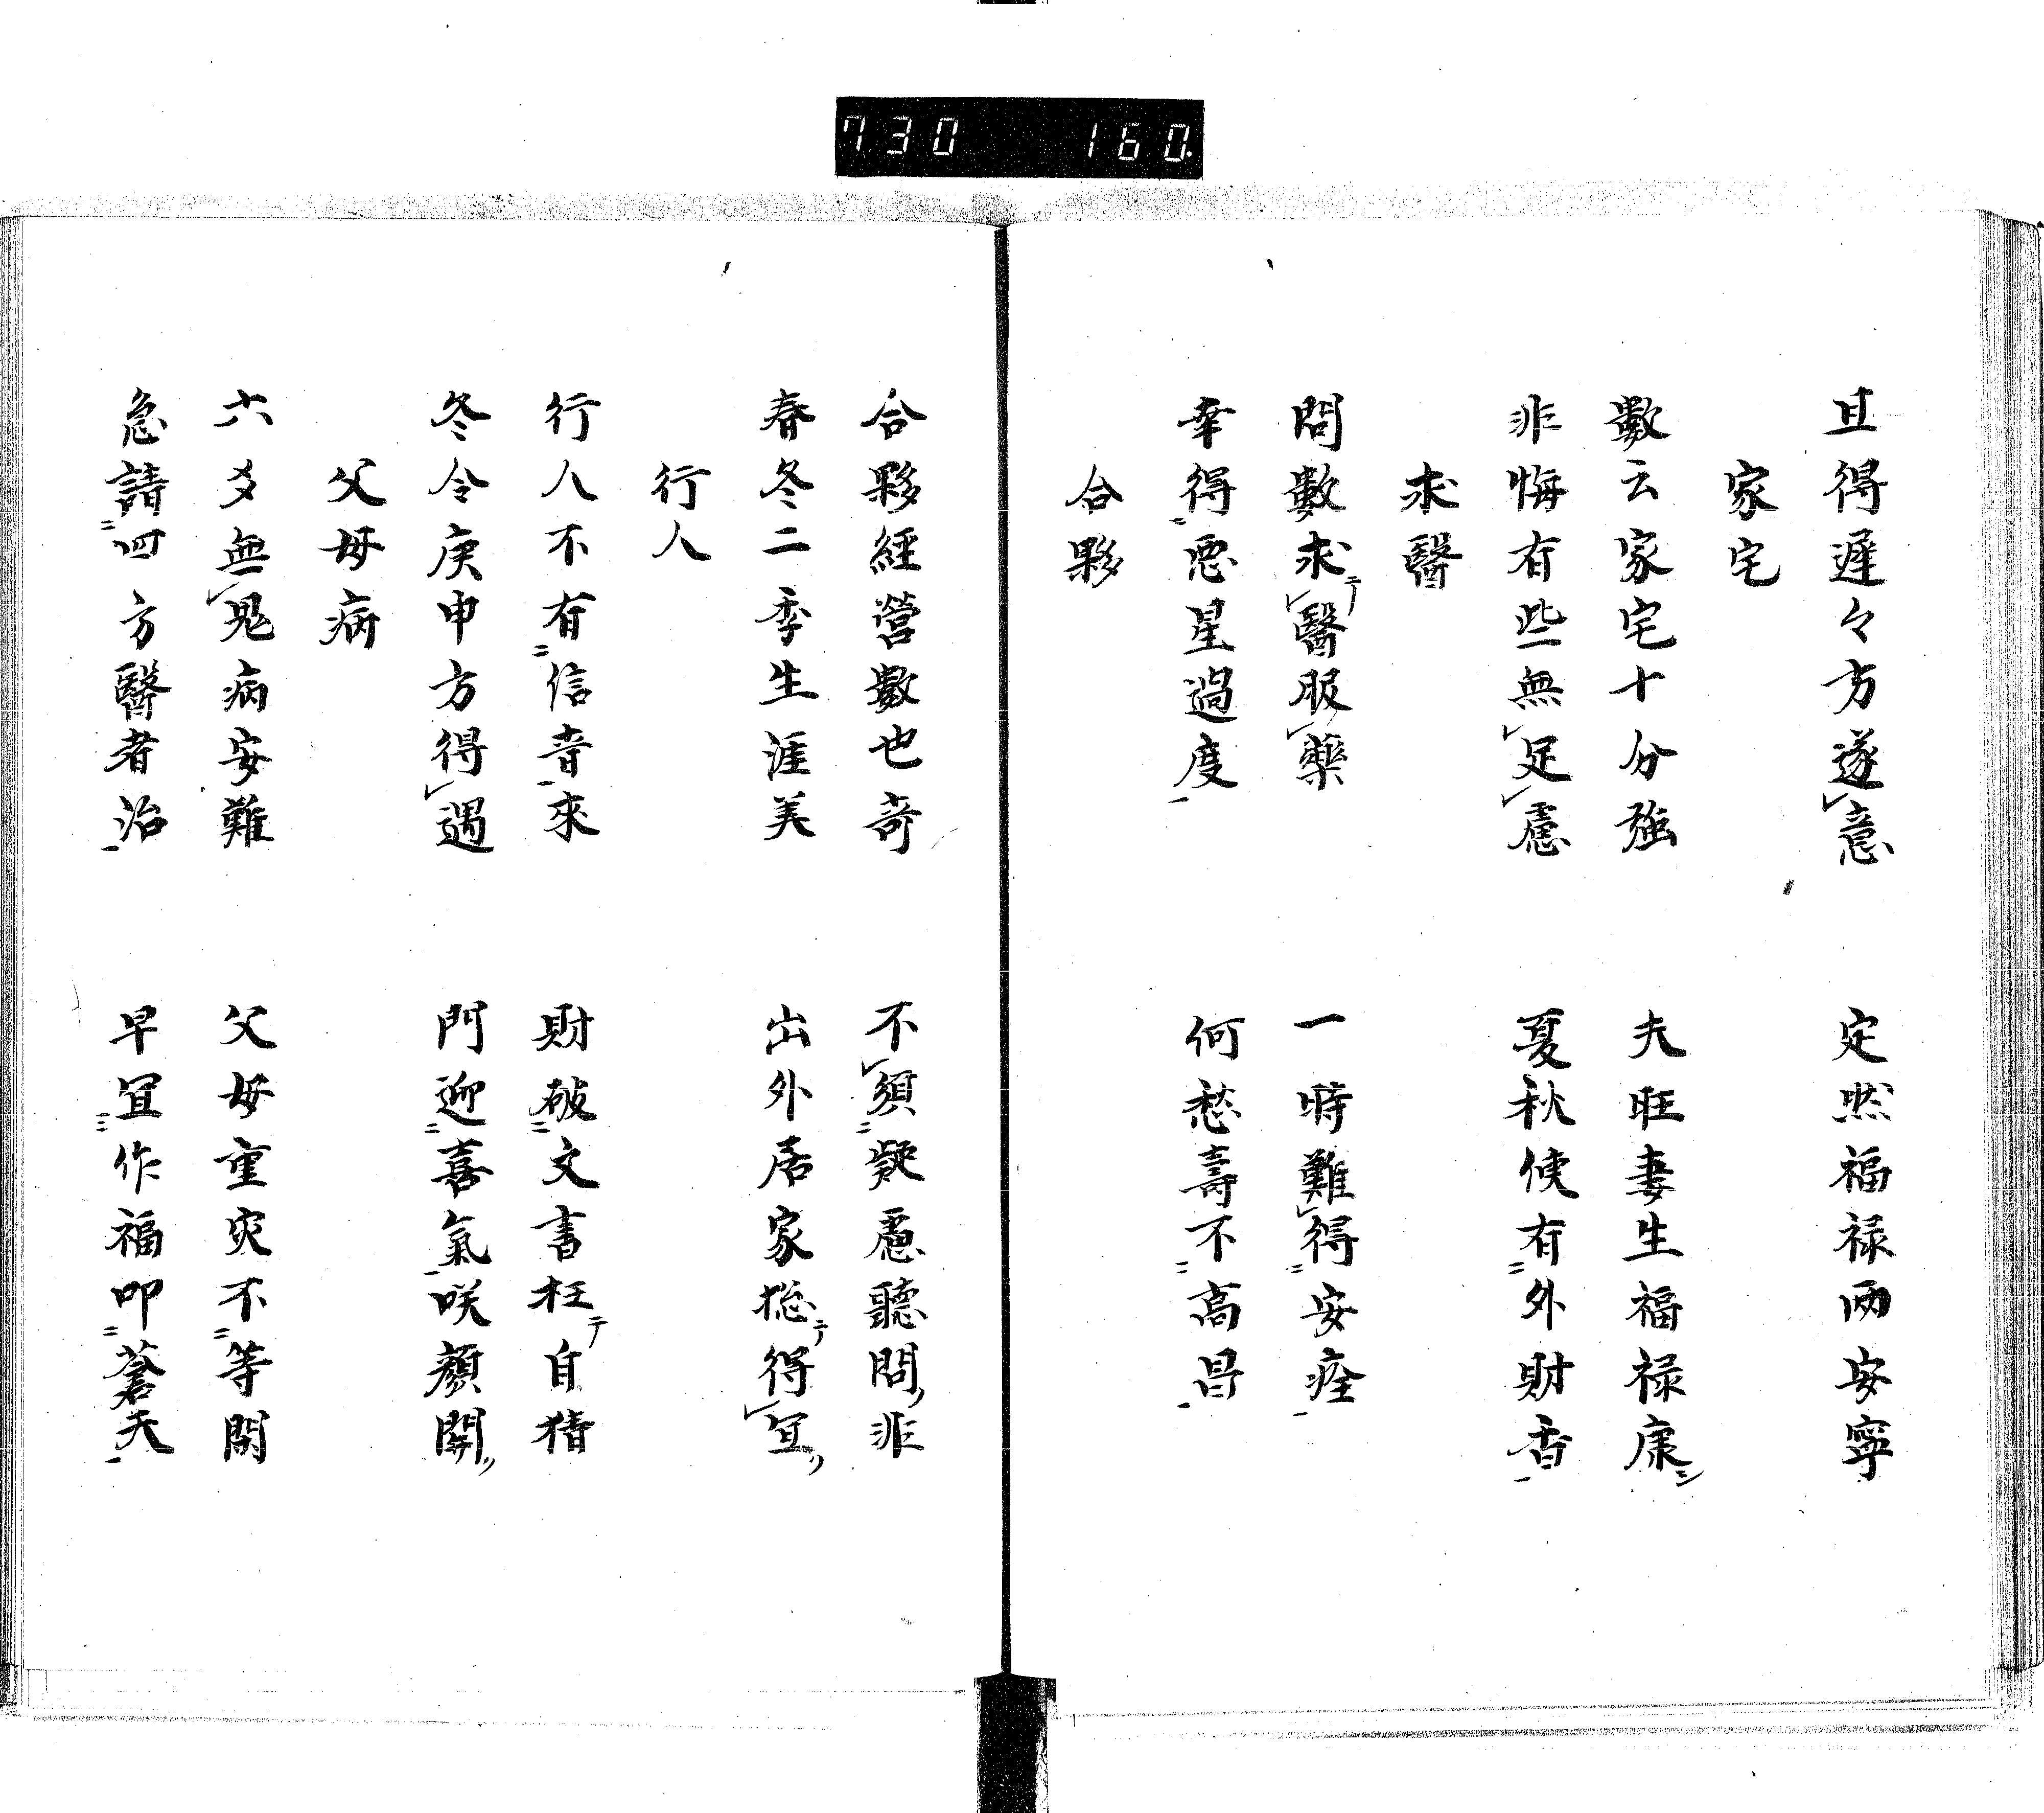 730 160.
且得遅々方遂意 定然福禄両安寧
家宅
數云家宅十分強 夫旺妻生福禄康
非悔有些無足慮 夏秋使有外財香
求醫
問數求醫服藥 一時難得安痊
幸得悪星過度 何愁壽不高昌
合夥
合夥經營數也奇 不須疑慮聽問非
春冬二季生涯美 出外居家揔得宜
行人
行人不有信音來 財破文書枉自猜
冬令庚申方得遇 門迎喜氣咲顔開
父母病
六爻無鬼病安難 父母重灾不等閑
急請四方醫者治 早宜作福叩蒼天